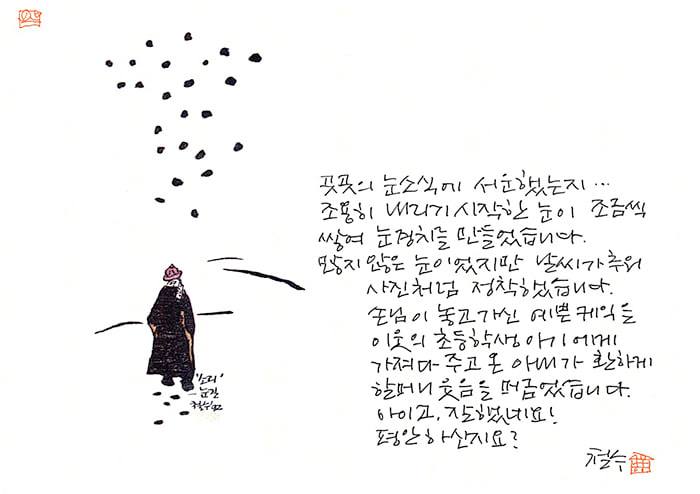 곳곳의 눈소식에 서운했는지...
조용히 내리기 시작한 눈이 조금씩
쌓여 눈경치를 만들었습니다.
많지 않은 눈이었지만 날씨가 추워
사진처럼 정착했습니다.
손님이 놓고가신 예쁜 케익을
이웃의 초등학생 아기에게
가져다 주고 온 아씨가 환하게
할머니 웃음을 머금었습니다.
아이고, 잘했네요!
평안하신지요?
철수
"소리"
눈길
철수 92